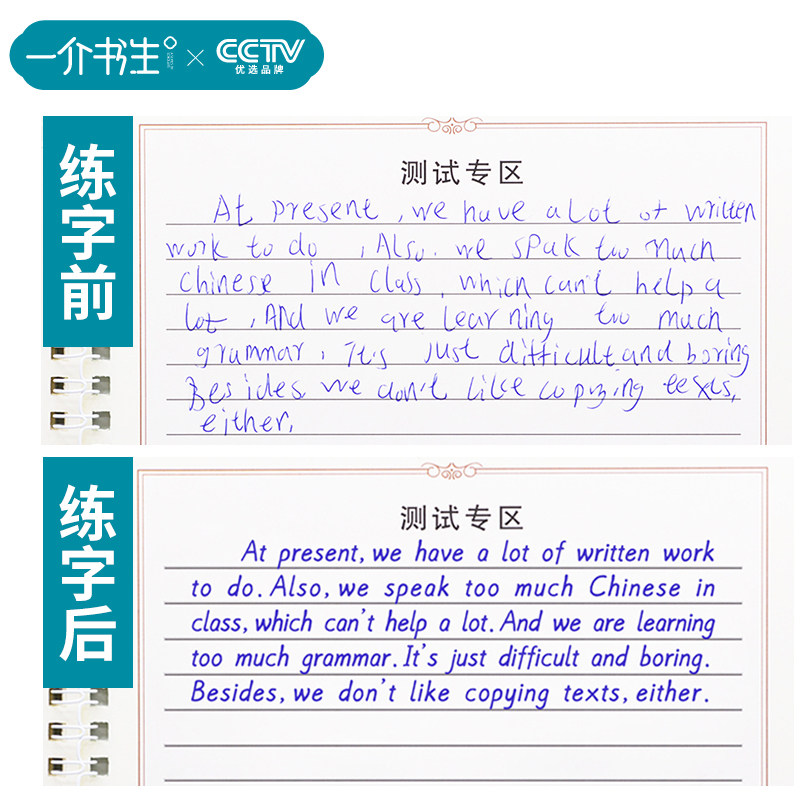 一介书生 × CCTV
优选品牌
练字前
测试专区
At present , we have a lot of written
work to do , Also. we spak too much
Chinese in class , which can't help a
lot , And we are learning too much
grammar , It's just difficult and boring
Besides we don't like copying texts,
either,
练字后
测试专区
At present, we have a lot of written work
to do. Also, we speak too much Chinese in
class, which can't help a lot. And we are learning
too much grammar. It's just difficult and boring.
Besides, we don't like copying texts, either.